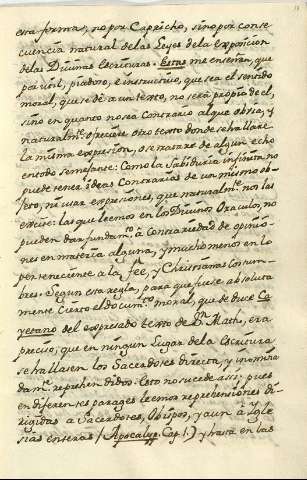 esta forma, no por Capricho, sino por conse
cuencia natural de las Leyes de la exposicion
de las Divinas escrituras. Estas me enseñan, que
por util, piadoso, e instructivo, que sea el sentido
moral, que se dè a un texto, no serà propia de el,
sino en quanto no sea Contrario al que obvia, y
naturalmte. ofreciere otro texto donde se hallare
la misma expresion, o se tratare de algun echo
en todo semejante: Como la Sabiduria infinita no
puede tener ideas Contrarias de un mismo ob-
jeto, ni usar expresiones, que naturalmte. no las
excite: las que leemos en los Divinos Oraculos, no
pueden dar fundamto. à contrariedad de opinio-
nes en materia alguna, y mucho menos en lo
perteneciente a la fee, y Christianas Costum-
bres. Segun esta regla, para que fuese absoluta
mente Cierto el documto. moral, que deduce Ca
yetano del expresado texto de Sn. Math, era
preciso, que en ningun lugar de la Escritura
se hallasen los Sacerdotes directa, y inmedia
damte. reprehendidos: esto no sucede asi: pues
en diferentes parages leemos reprehensiones di-
rigidas a Sacerdotes, Obispos, y aun à Igle
sias enteras (Apocalyp. Cap. 1.) y hasta en las